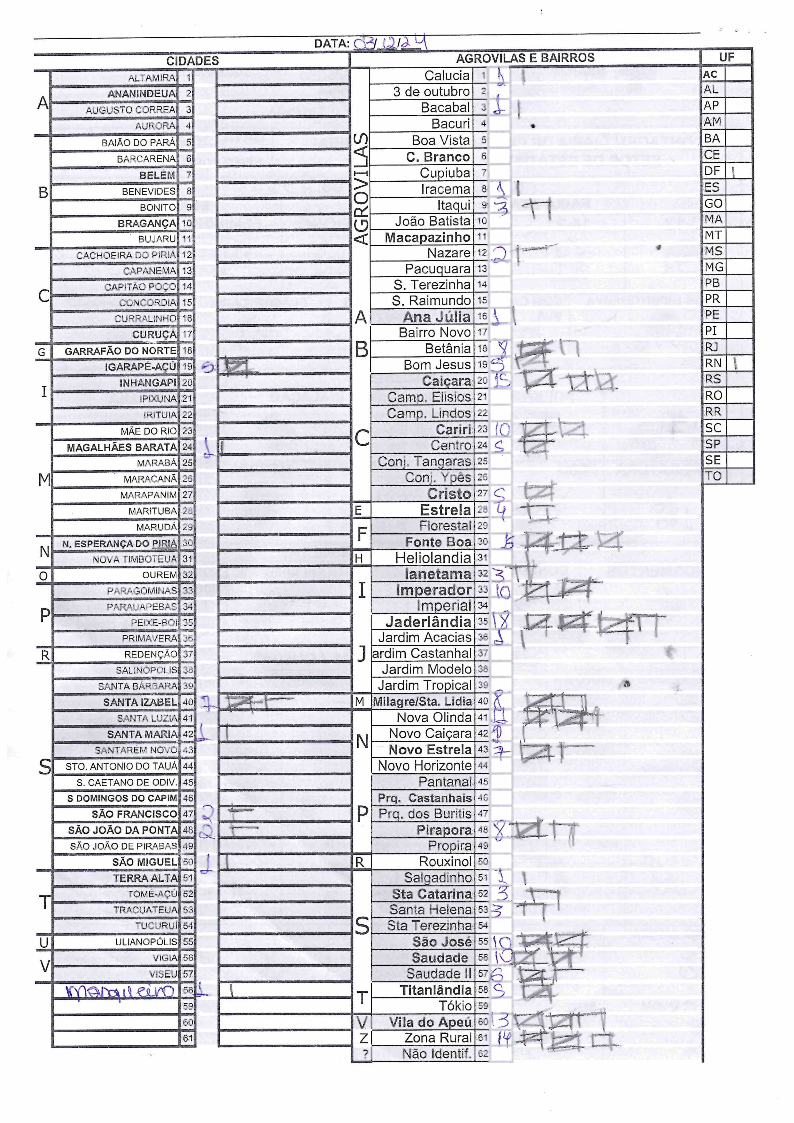 DATA: 03/12/24
CIDADES
A
ALTAMIRA 1
ANANINDEUA 2
AUGUSTO CORREA 3
AURORA 4
B
BAIÃO DO PARÁ 5
BARCARENA 6
BELÉM 7
BENEVIDES 8
BONITO 9
BRAGANÇA 10
BUJARU 11
C
CACHOEIRA DO PIRIA 12
CAPANEMA 13
CAPITÃO POÇO 14
CONCORDIA 15
CURRALINHO 16
CURUÇA 17
G
GARRAFÃO DO NORTE 18
I
IGARAPÉ-AÇÚ 19 5
INHANGAPI 20
IPIXUNA 21
IRITUIA 22
M
MÃE DO RIO 23
MAGALHÃES BARATA 24 1
MARABÁ 25
MARACANÃ 26
MARAPANIM 27
MARITUBA 28
MARUDÁ 29
N
N. ESPERANÇA DO PIRIA 30
NOVA TIMBOTEUA 31
O
OUREM 32
P
PARAGOMINAS 33
PARAUAPEBAS 34
PEIXE-BOI 35
PRIMAVERA 36
R
REDENÇÃO 37
S
SALINOPOLIS 38
SANTA BÁRBARA 39
SANTA IZABEL 40 7
SANTA LUZIA 41
SANTA MARIA 42 1
SANTAREM NOVO 43
STO. ANTONIO DO TAUÁ 44
S. CAETANO DE ODIV. 45
S DOMINGOS DO CAPIM 46
SÃO FRANCISCO 47 2
SÃO JOÃO DA PONTA 48 2
SÃO JOÃO DE PIRABAS 49
SÃO MIGUEL 50 1
T
TERRA ALTA 51
TOME-AÇÚ 52
TRACUATEUA 53
TUCURUI 54
U
ULIANOPÓLIS 55
V
VIGIA 56
VISEU 57
58 1
59
60
61
AGROVILAS E BAIRROS
AGROVILAS
Calucia 1 1
3 de outubro 2
Bacabal 3 1
Bacuri 4
Boa Vista 5
C. Branco 6
Cupiuba 7
Iracema 8 1
Itaqui 9 3
João Batista 10
Macapazinho 11
Nazare 12 2
Pacuquara 13
S. Terezinha 14
S. Raimundo 15
A
Ana Júlia 16 1
B
Bairro Novo 17
Betânia 18 8
Bom Jesus 19 5
C
Caiçara 20 15
Camp. Elisios 21
Camp. Lindos 22
Cariri 23 10
Centro 24 5
Conj. Tangaras 25
Conj. Ypês 26
Cristo 27 5
E
Estrela 28 4
F
Florestal 29
Fonte Boa 30 15
H
Heliolandia 31
I
Ianetama 32 3
Imperador 33 10
Imperial 34
J
Jaderlândia 35 18
Jardim Acacias 36 1
ardim Castanhal 37
Jardim Modelo 38
Jardim Tropical 39
M
Milagre/Sta. Lidia 40 8
N
Nova Olinda 41
Novo Caiçara 42
Novo Estrela 43 7
Novo Horizonte 44
P
Pantanal 45
Prq. Castanhais 46
Prq. dos Buritis 47
Pirapora 48 8
Propira 49
R
Rouxinol 50
S
Salgadinho 51 1
Sta Catarina 52 3
Santa Helena 53 3
Sta Terezinha 54
São José 55 10
Saudade 56 10
Saudade II 57 6
T
Titanlândia 58 5
Tókio 59
V
Vila do Apeú 60 13
Z
Zona Rural 61 14
?
Não Identif. 62
UF
AC
AL
AP
AM
BA
CE
DF
ES
GO
MA
MT
MS
MG
PB
PR
PE
PI
RJ
RN
RS
RO
RR
SC
SP
SE
TO